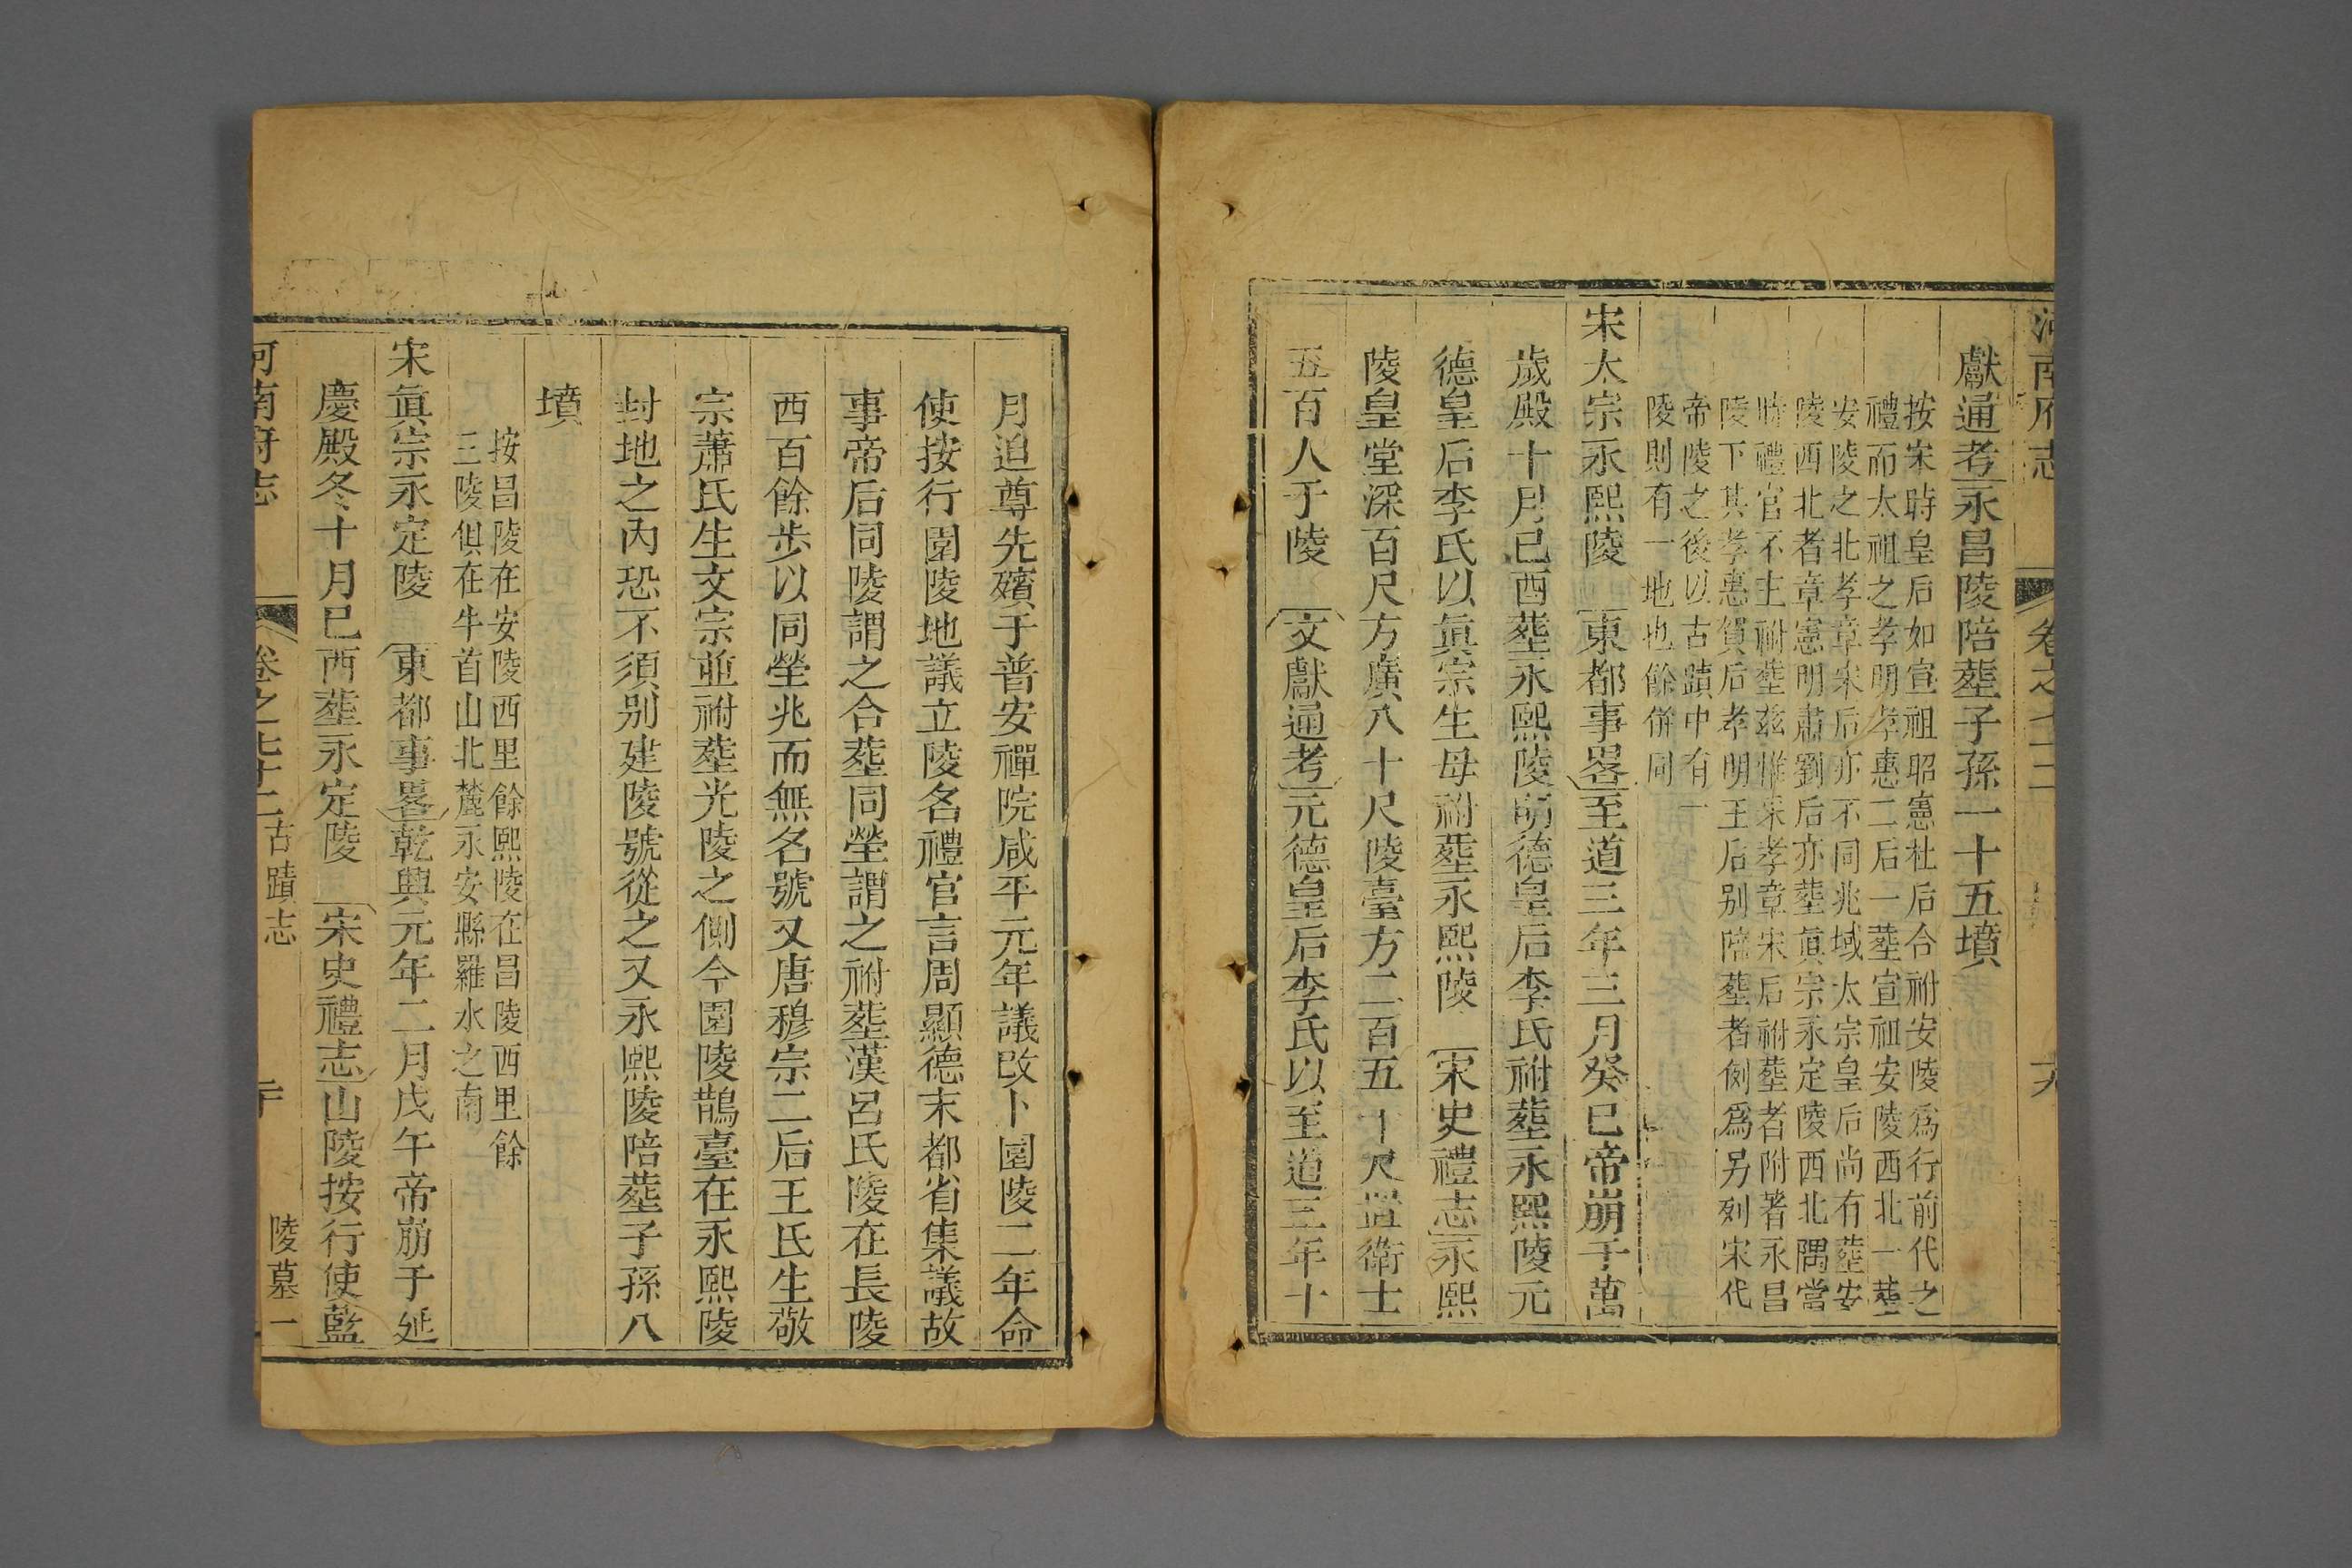 河南府志 卷之七十二
獻通考永昌陵陪塟子孫一十五墳
按宋時皇后如宣祖昭憲杜后合祔安陵爲行前代之
禮而太祖之孝明孝惠二后一塟宣祖安陵西北一塟
安陵之北孝章宋后亦不同兆域太宗皇后尚有塟安
陵西北者章憲明肅劉后亦塟眞宗永定陵西北隅當
時禮官不主祔塟兹惟宋孝章宋后祔塟者附著永昌
陵下其孝惠賀后孝明王后别陪塟者側爲另列宋代
帝陵之後以古蹟中有一
陵則有一地也餘併同
宋太宗永熙陵 東都事畧至道三年三月癸巳帝崩于萬
歲殿十月己酉塟永熙陵明德皇后李氏祔塟永熙陵元
德皇后李氏以眞宗生母祔塟永熙陵 宋史禮志永熙
陵皇堂深百尺方廣八十尺陵臺方二百五十尺置衛士
五百人于陵 文獻通考元德皇后李氏以至道三年十
月追尊先殯于普安禪院咸平元年議改卜園陵二年命
使按行園陵地議立陵名禮官言周顯德末都省集議故
事帝后同陵謂之合塟同塋謂之祔塟漢呂氏陵在長陵
西百餘步以同塋兆而無名號又唐穆宗二后王氏生敬
宗蕭氏生文宗並祔塟光陵之側今園陵鵲臺在永熙陵
封地之內恐不須别建陵號從之又永熙陵陪塟子孫八
墳
按昌陵在安陵西里餘熙陵在昌陵西里餘
三陵俱在牛首山北麓永安縣羅水之南
宋眞宗永定陵 東都事畧乾興元年二月戊午帝崩于延
慶殿冬十月已酉塟永定陵 宋史禮志山陵按行使藍
河南府志 卷之七十二 古蹟志 二十 陵墓一